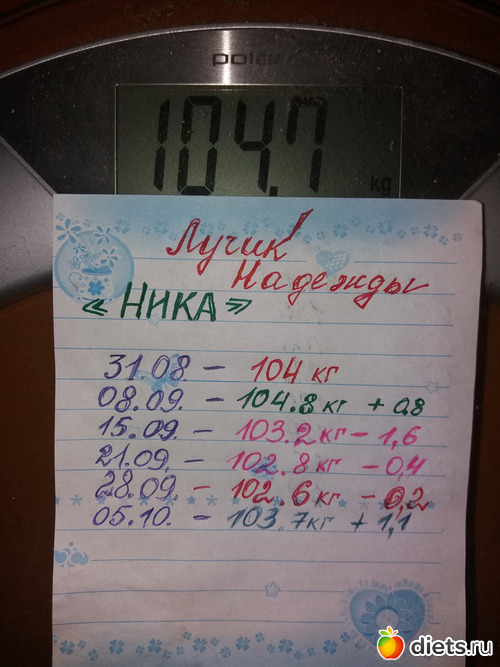 polaris
104.7 kg
Лучик
Надежды
« НИКА »
31.08. – 104 кг
08.09. – 104.8 кг + 0,8
15.09. – 103.2 кг – 1,6
21.09. – 102.8 кг – 0,4
28.09. – 102.6 кг – 0,2
05.10. – 103.7 кг + 1,1
diets.ru